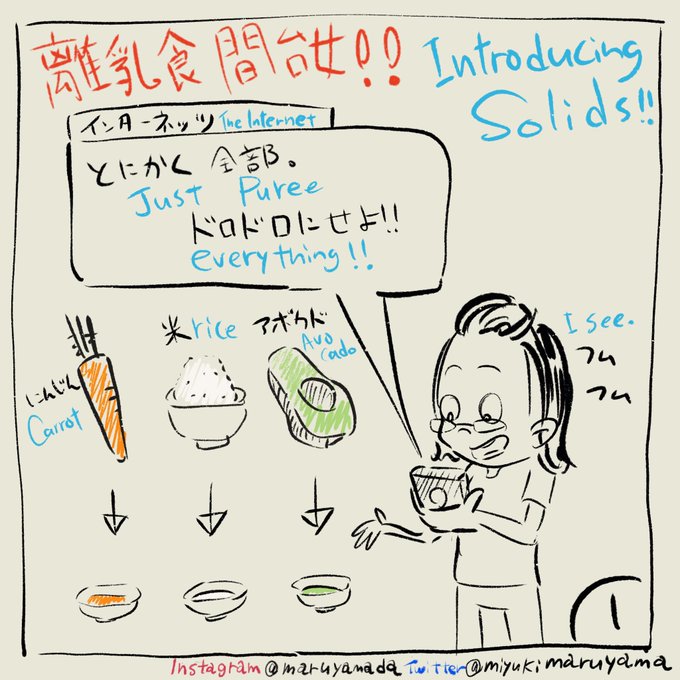 離乳食 間台女!!
Introducing
Solids!!
インターネッツ The Internet
とにかく 全部。
Just Puree
ドロドロにせよ!!
everything!!
にんじん
Carrot
米 rice
アボカド
Avo
cado
I see.
フム
フム
1
Instagram @maruyamada Twitter @miyukimaruyama